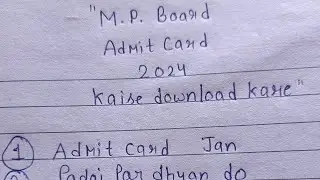 "M.P. Board
Admit Card
2024
Kaise download kare"
1 Admit Card Jan
Padai Par dhyan do